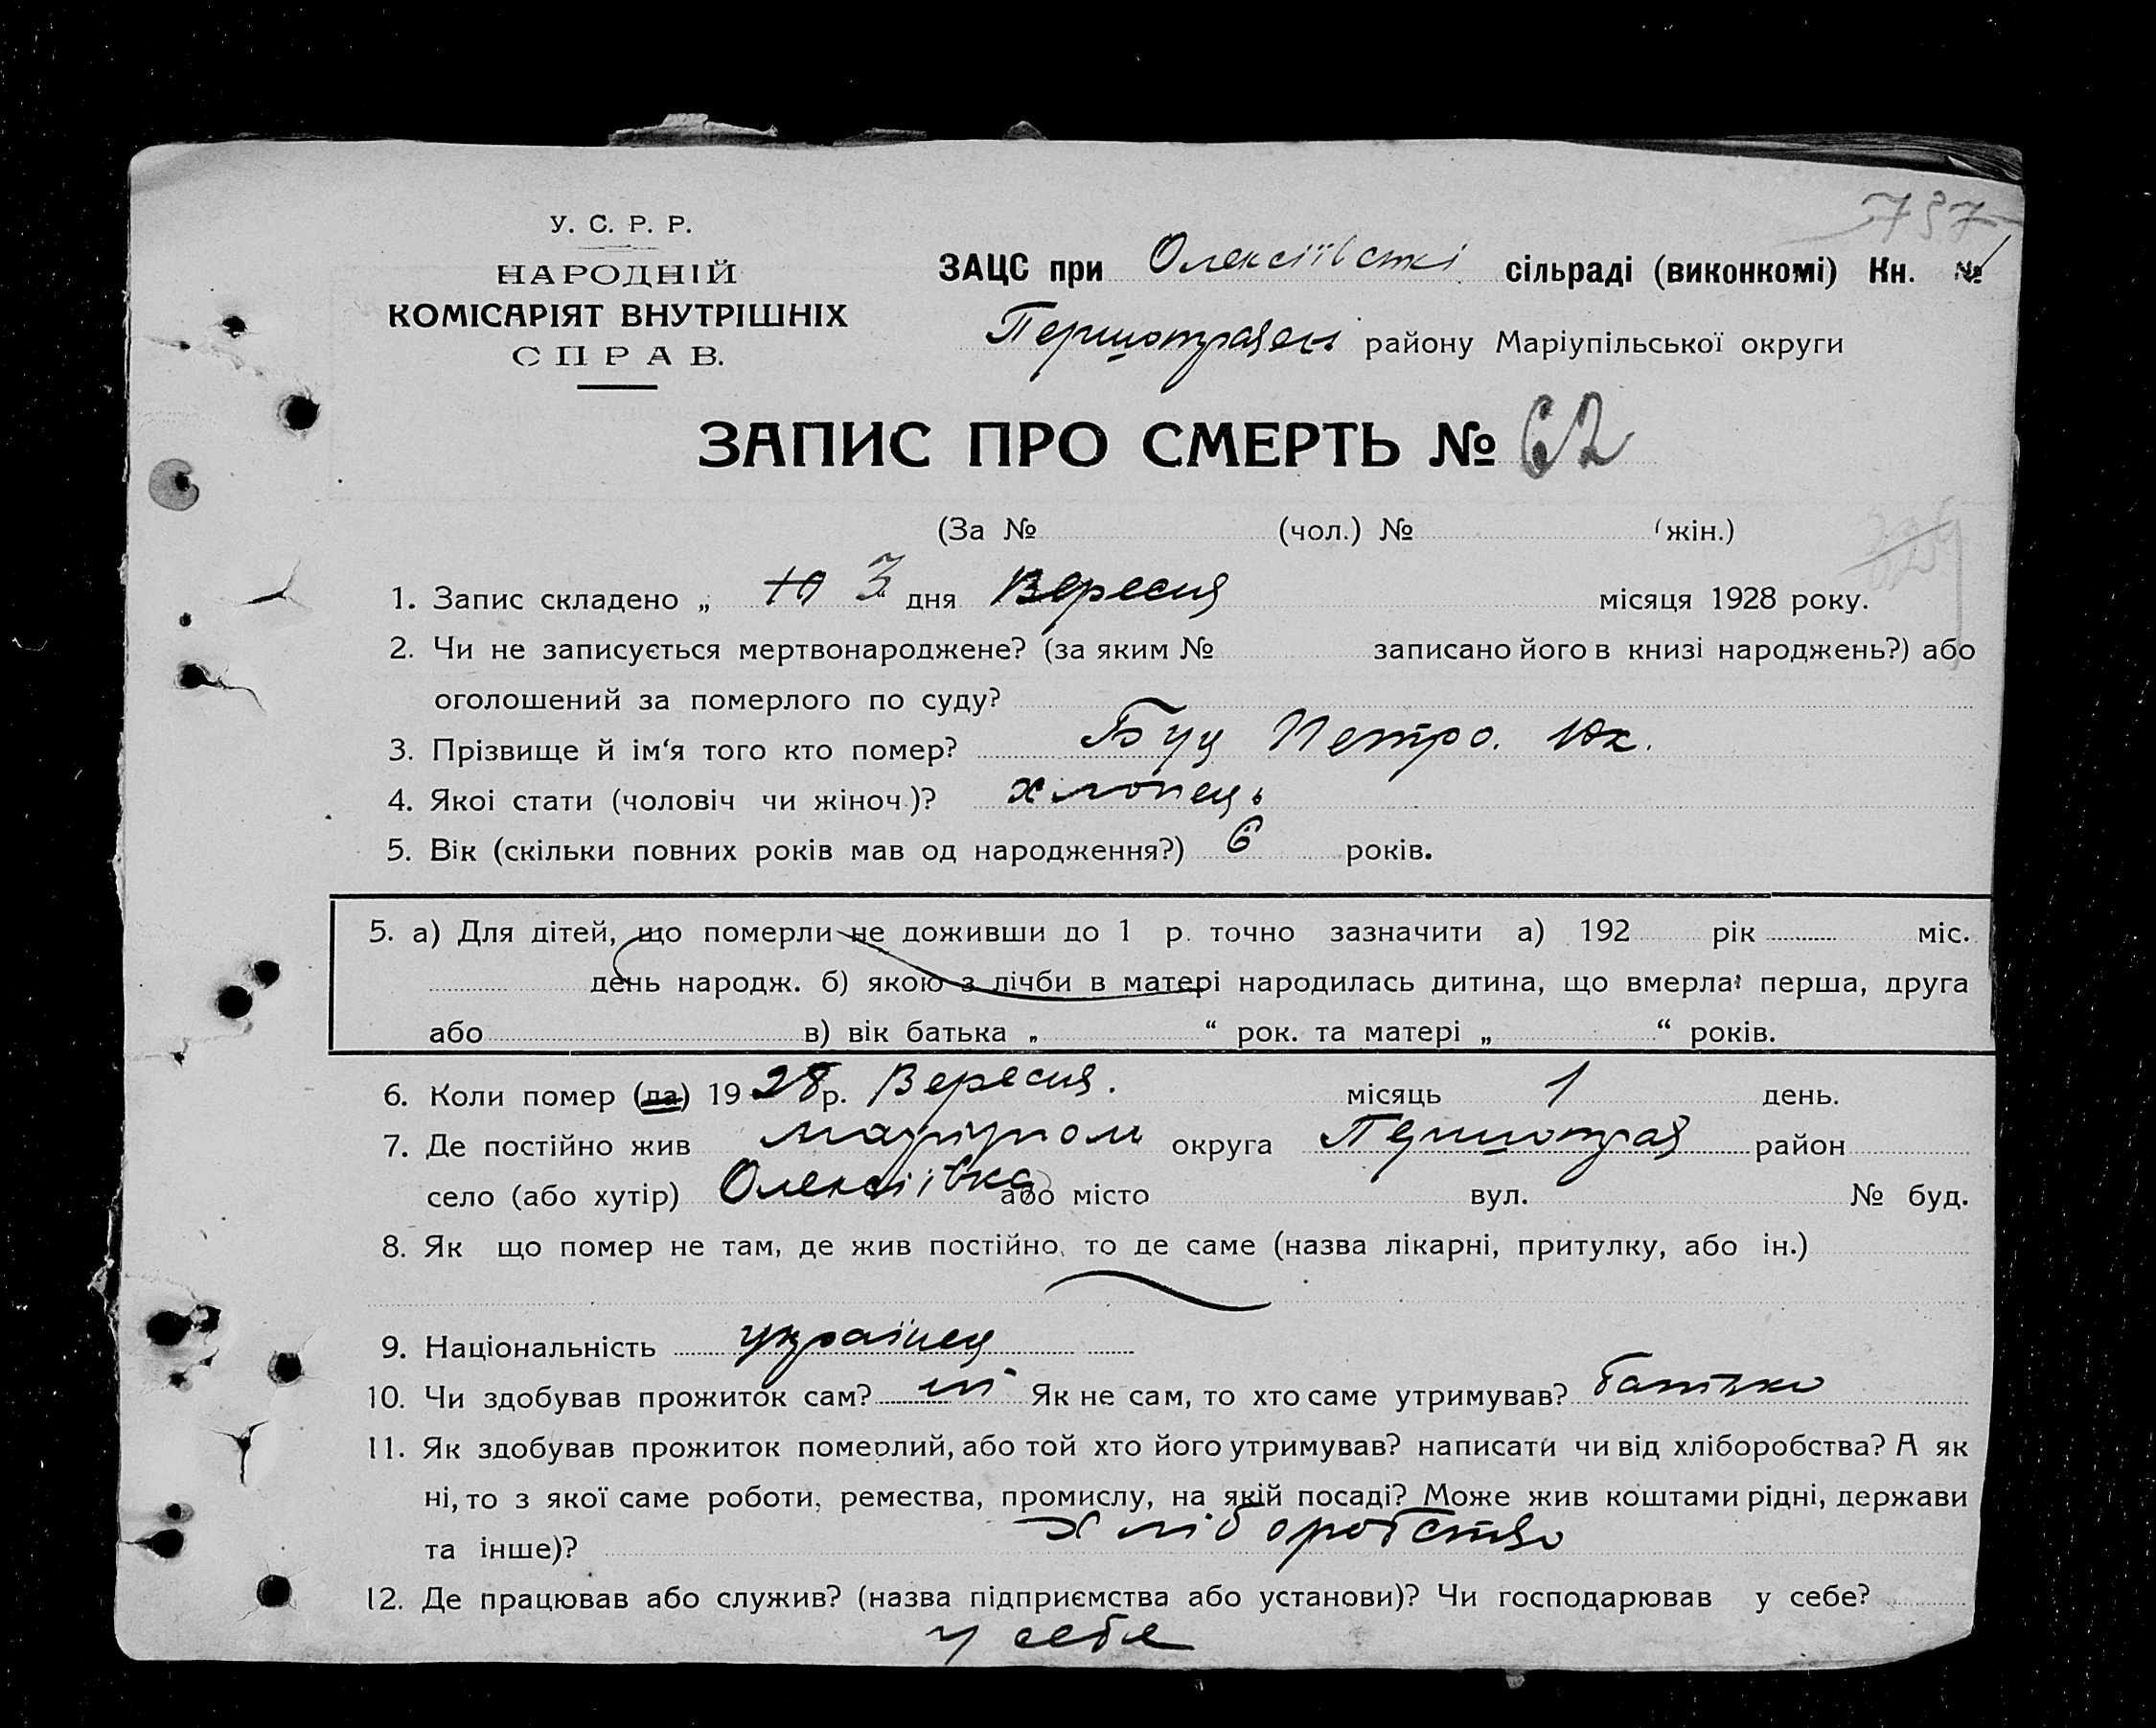 737
У. С. Р. Р.
НАРОДНІЙ
КОМІСАРІЯТ ВНУТРІШНІХ
СПРАВ.
ЗАЦС при Олексіївскі сільраді (виконкомі) Кн. №
району Маріупільської округи
ЗАПИС ПРО СМЕРТЬ № 62
(За № (чол.) № (жін.)
1. Запис складено „ 3 дня Вересня місяця 1928 року.
2. Чи не записується мертвонароджене? (за яким № записано його в книзі народжень?) або
оголошений за померлого по суду?
3. Прізвище й ім‘я того кто помер? Буц Петро. Як.
4. Якоі стати (чоловіч чи жіноч.)? хлопець
5. Вік (скільки повних років мав од народження?) 6 років.
5. а) Для дітей, що померли не доживши до 1 р. точно зазначити а) 192 рік міс.
день народж. б) якою з лічби в матері народилась дитина, що вмерла: перша, друга
або в) вік батька „ “ рок. та матері „ “ років.
6. Коли помер (ла) 1928 р. Вересня. місяць 1 день.
7. Де постійно жив округа Першотрав район
село (або хутір) Олексіївка або місто вул. № буд.
8. Як що помер не там, де жив постійно, то де саме (назва лікарні, притулку, або ін.)
9. Національність українец
10. Чи здобував прожиток сам? ні Як не сам, то хто саме утримував? батько
11. Як здобував прожиток померлий, або той хто його утримував? написати чи від хліборобства? А як
ні, то з якої саме роботи, ремества, промислу, на якій посаді? Може жив коштами рідні, держави
та інше)? хліборобство
12. Де працював або служив? (назва підприємства або установи)? Чи господарював у себе?
у себе